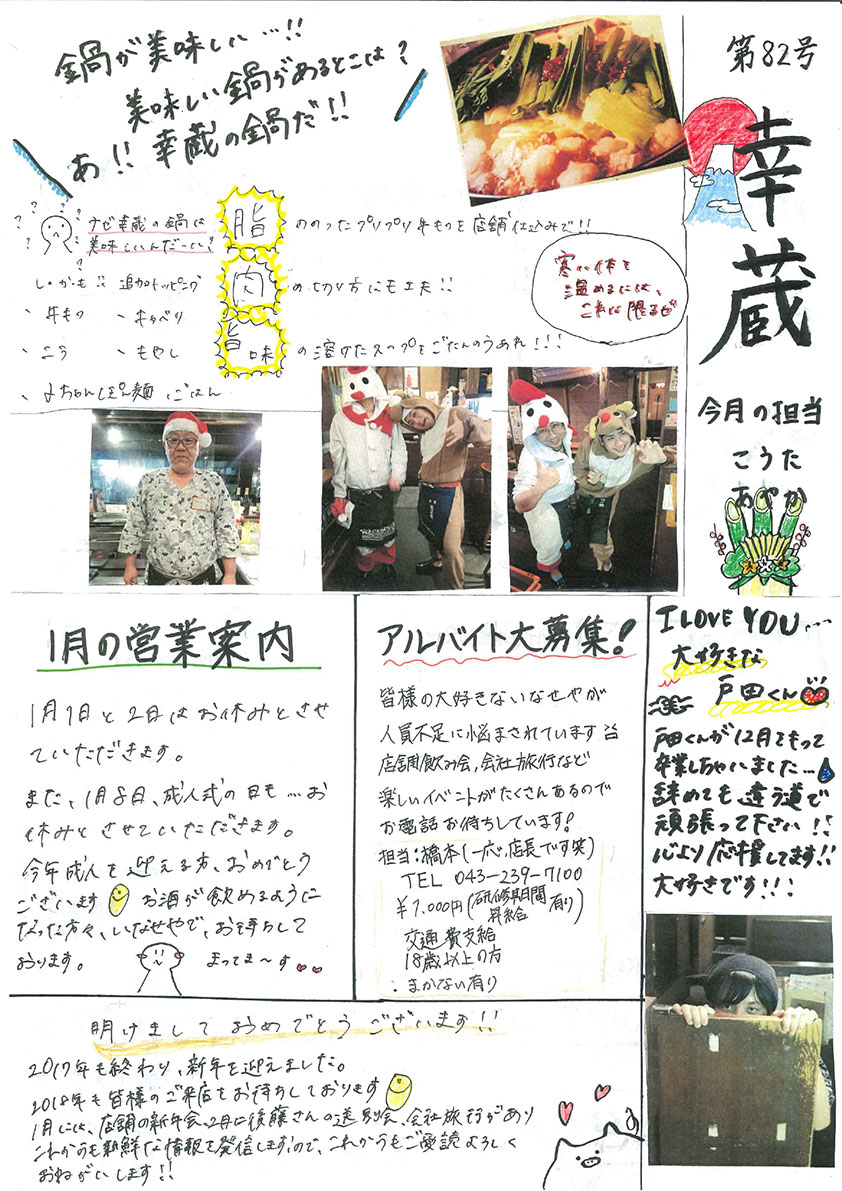 第82号
幸蔵
今月の担当
こうた
あやか
鍋が美味しい…!!
美味しい鍋があるとこは?
あ!! 幸蔵の鍋だ!!
ナゼ幸蔵の鍋は
美味しいんだーい?
脂 ののったプリプリ牛もつを店舗仕込みで!!
肉 の切り方にも工夫!!
旨味 の溶けたスープをごたんのうあれ!!!
しかも!! 追加トッピング
、牛もつ 、キャベツ
、ニラ 、もやし
、ちゃんぽん麺 ごはん
寒い体を
温めるには、
これに限るぜ
1月の営業案内
1月1日と2日はお休みとさせ
ていただきます。
また、1月8日、成人式の日も…お
休みとさせていただきます。
今年成人を迎える方、おめでとう
ございます お酒が飲めるように
なった方々、いなせやで、お待ちして
おります。 まってま〜す
アルバイト大募集!
皆様の大好きないなせやが
人員不足に悩まされています
店舗飲み会,会社旅行など
楽しいイベントがたくさんあるので
お電話お待ちしています!
担当:橋本(一応、店長です笑)
TEL 043-239-7100
¥1.000円(研修期間有り
昇給)
交通費支給
18歳以上の方
.まかない有り
I LOVE YOU....
大好きな
戸田くん
戸田くんが12月をもって
卒業しちゃいました…
辞めても違う道で
頑張って下さい!!
心より応援してます!!
大好きです!!!
明けましておめでとうございます!!
2017年も終わり、新年を迎えました。
2018年も皆様のご来店をお待ちしております
1月には、店舗の新年会、2月に後藤さんの送別会、会社旅行があり
これからも新鮮な情報を発信しますので、これからもご愛読よろしく
おねがいします!!